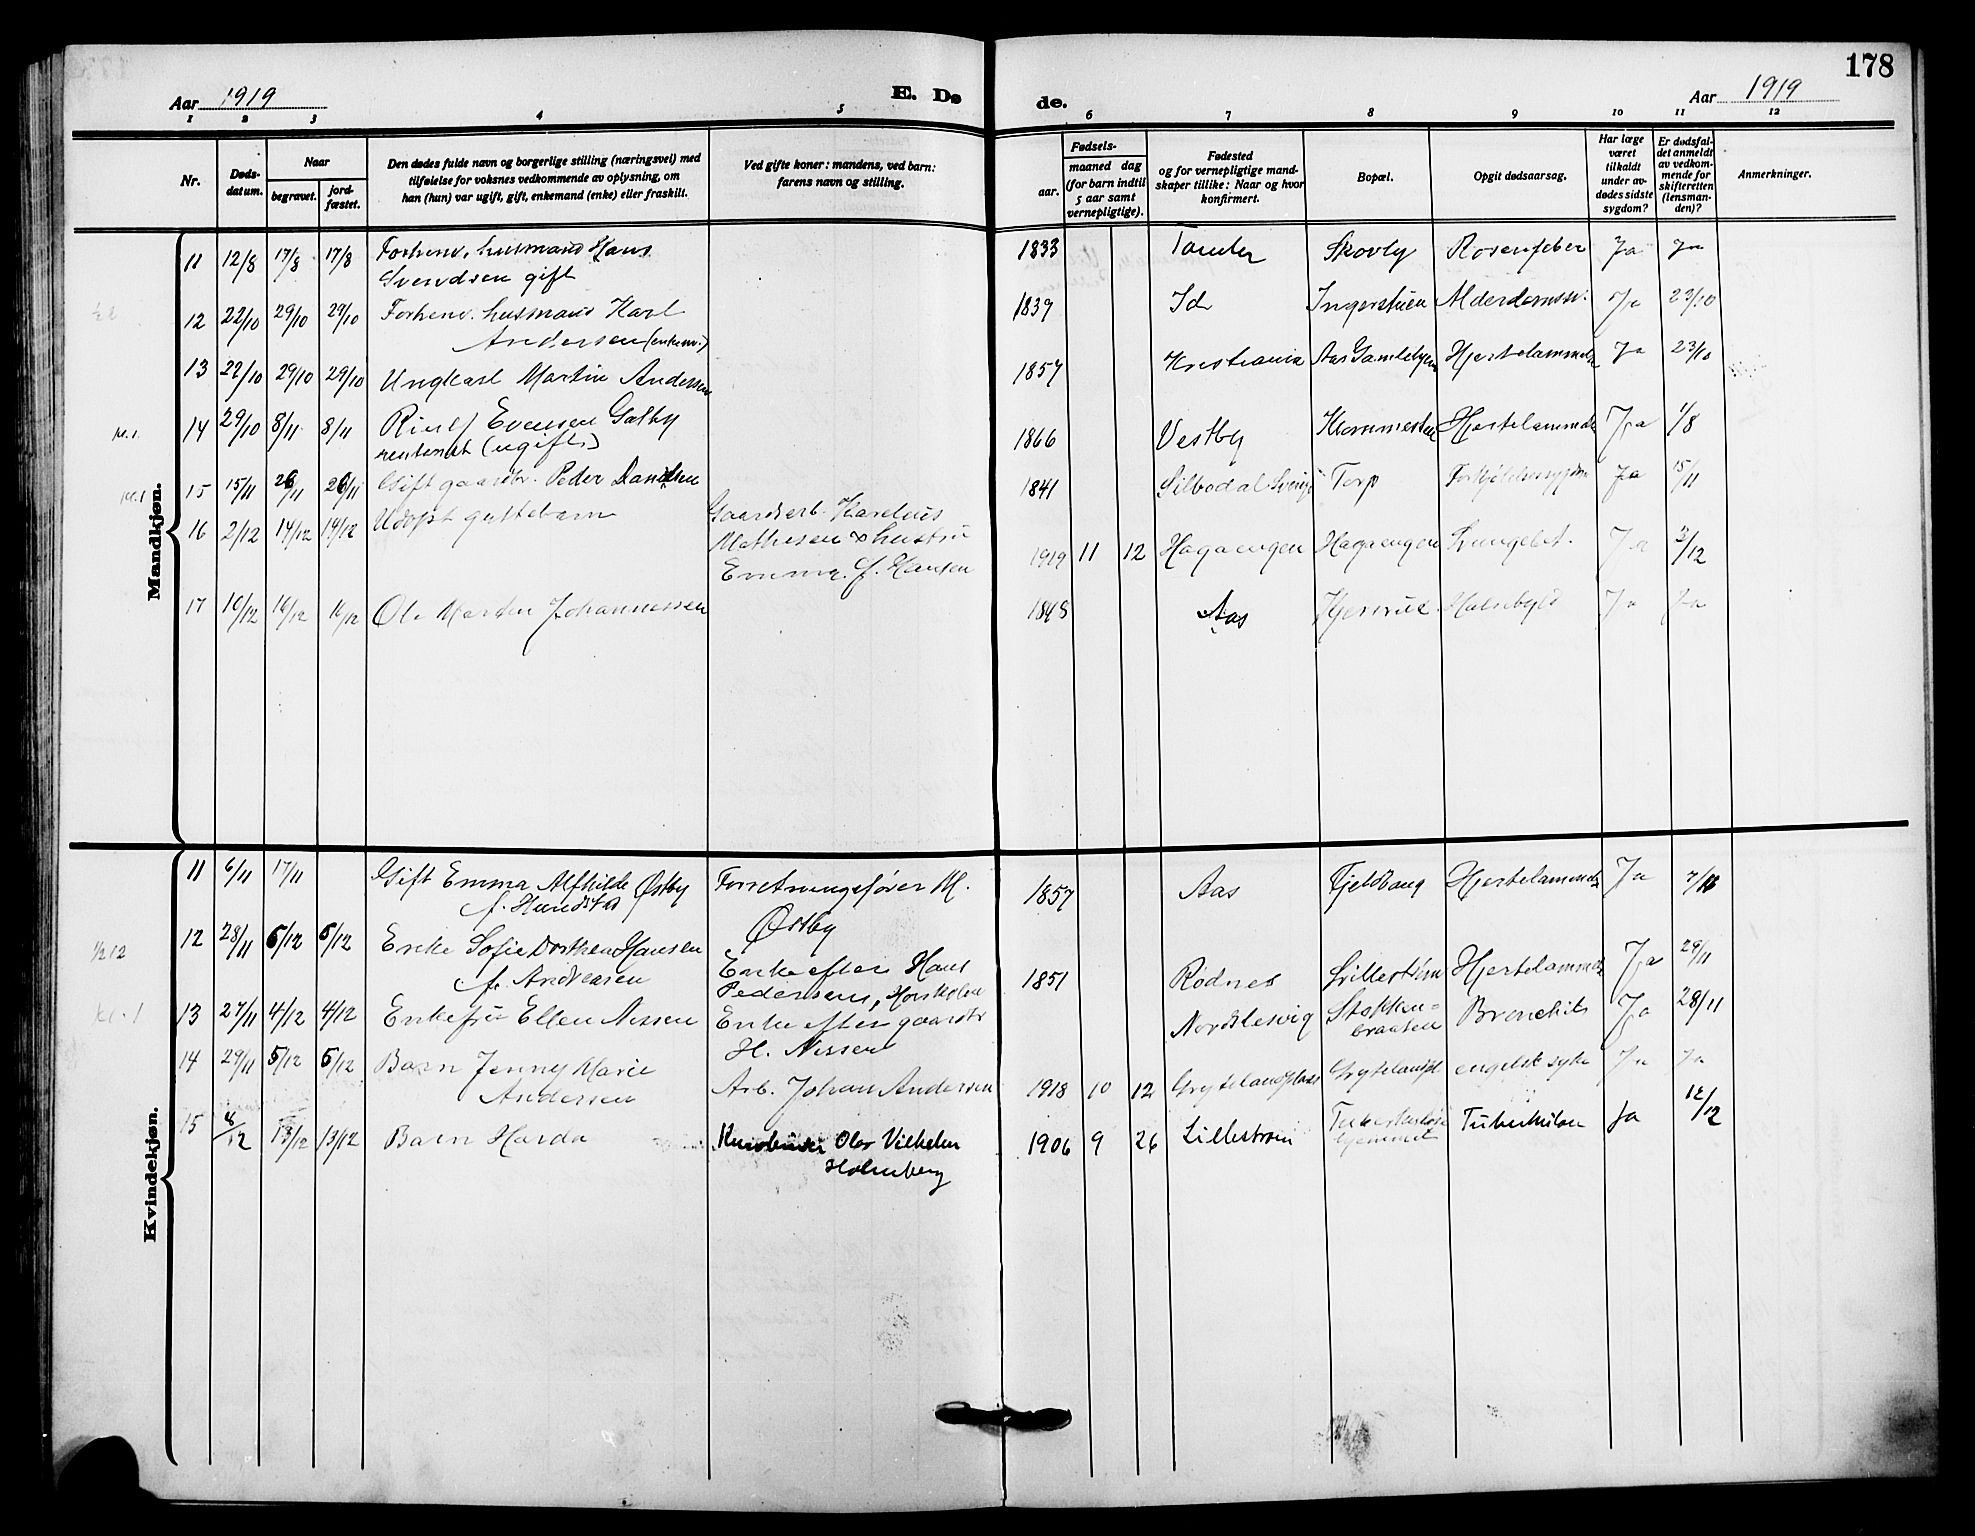 178
Aar 1919
E. Dø
de.
Aar 1919
1 2 3 4 5 6 7 8 9 10 11 12
Nr.
Døds-
datum.
Naar
begravet.
jord-
fæstet.
Den dødes fulde navn og borgerlige stilling (næringsvei) med
tilføielse for voksnes vedkommende av oplysning, om
han (hun) var ugift, gift, enkemand (enke) eller fraskilt.
Ved gifte koner: mandens, ved barn:
farens navn og stilling.
Fødsels-
aar.
maaned dag
(for barn indtil
5 aar samt
vernepligtige).
Fødested
og for vernepligtige mand-
skaper tillike: Naar og hvor
konfirmert.
Bopæl.
Opgit dødsaarsag.
Har læge
været
tilkaldt
under av-
dødes sidste
sygdom?
Er dødsfal-
det anmeldt
av vedkom-
mende for
skifteretten
(lensman-
den)?
Anmerkninger.
Mandkjøn.
11 12/8 17/8 17/8 Forhenv. husmand Hans
Svendsen gift
1833 Skovly Ja Ja
12 22/10 29/10 29/10 Forhenv. husmand Karl
Andersen (enkem.)
1839 Id Alderdomssv. Ja 23/10
13 22/10 29/10 29/10 Ungkarl Martin Andersen
1857 Kristiania Aas Hjertelammelse Ja 23/10
14 29/10 8/11 8/11 Evensen Galby
rentenist (ugift)
1866 Vestby Hjertelammelse Ja 1/8
15 15/11 26/11 26/11 Gift gaardbr. Peder Danielsen
1841 Silbodal Sverige Torp Ja 15/11
16 2/12 14/12 14/12 Udøpt guttebarn
Gaardsarb. Karelius
Mathisen & hustru
Emma f. Hansen
1919 11 12 Hagaengen Hagaengen Ja 3/12
17 10/12 16/12 16/12 Ole Martin Johannessen
1848 Aas Halsbyld Ja Ja
Kvindekjøn.
11 6/11 17/11 Gift Emma Alfhilde Østby
Forretningsfører M.
Østby
1857 Aas Fjeldhaug Hjertelammelse Ja 7/11
12 28/11 5/12 5/12 Enke Sofie Dorthea Hansen
f. Andreasen
Enke efter Hans
Pedersen,
1851 Rødnes Lillestrøm Hjertelammelse Ja 29/11
13 27/11 4/12 4/12 Enkefru Ellen Nissen
Enke efter gaardbr
H. Nissen
Nordslesvig Stokken-
braaten Bronchit Ja 28/11
14 29/11 5/12 5/12 Barn Jenny Marie
Andersen
Arb. Johan Andersen
1918 10 12 Grytelandplads Grytelandpl engelsk syke Ja Ja
15 4/12 13/12 13/12 Barn Harda
Olov Vilhelm
Holmberg
1906 9 26 Lillestrøm Tuberkulose
hjemmet Tuberkulose Ja 12/12